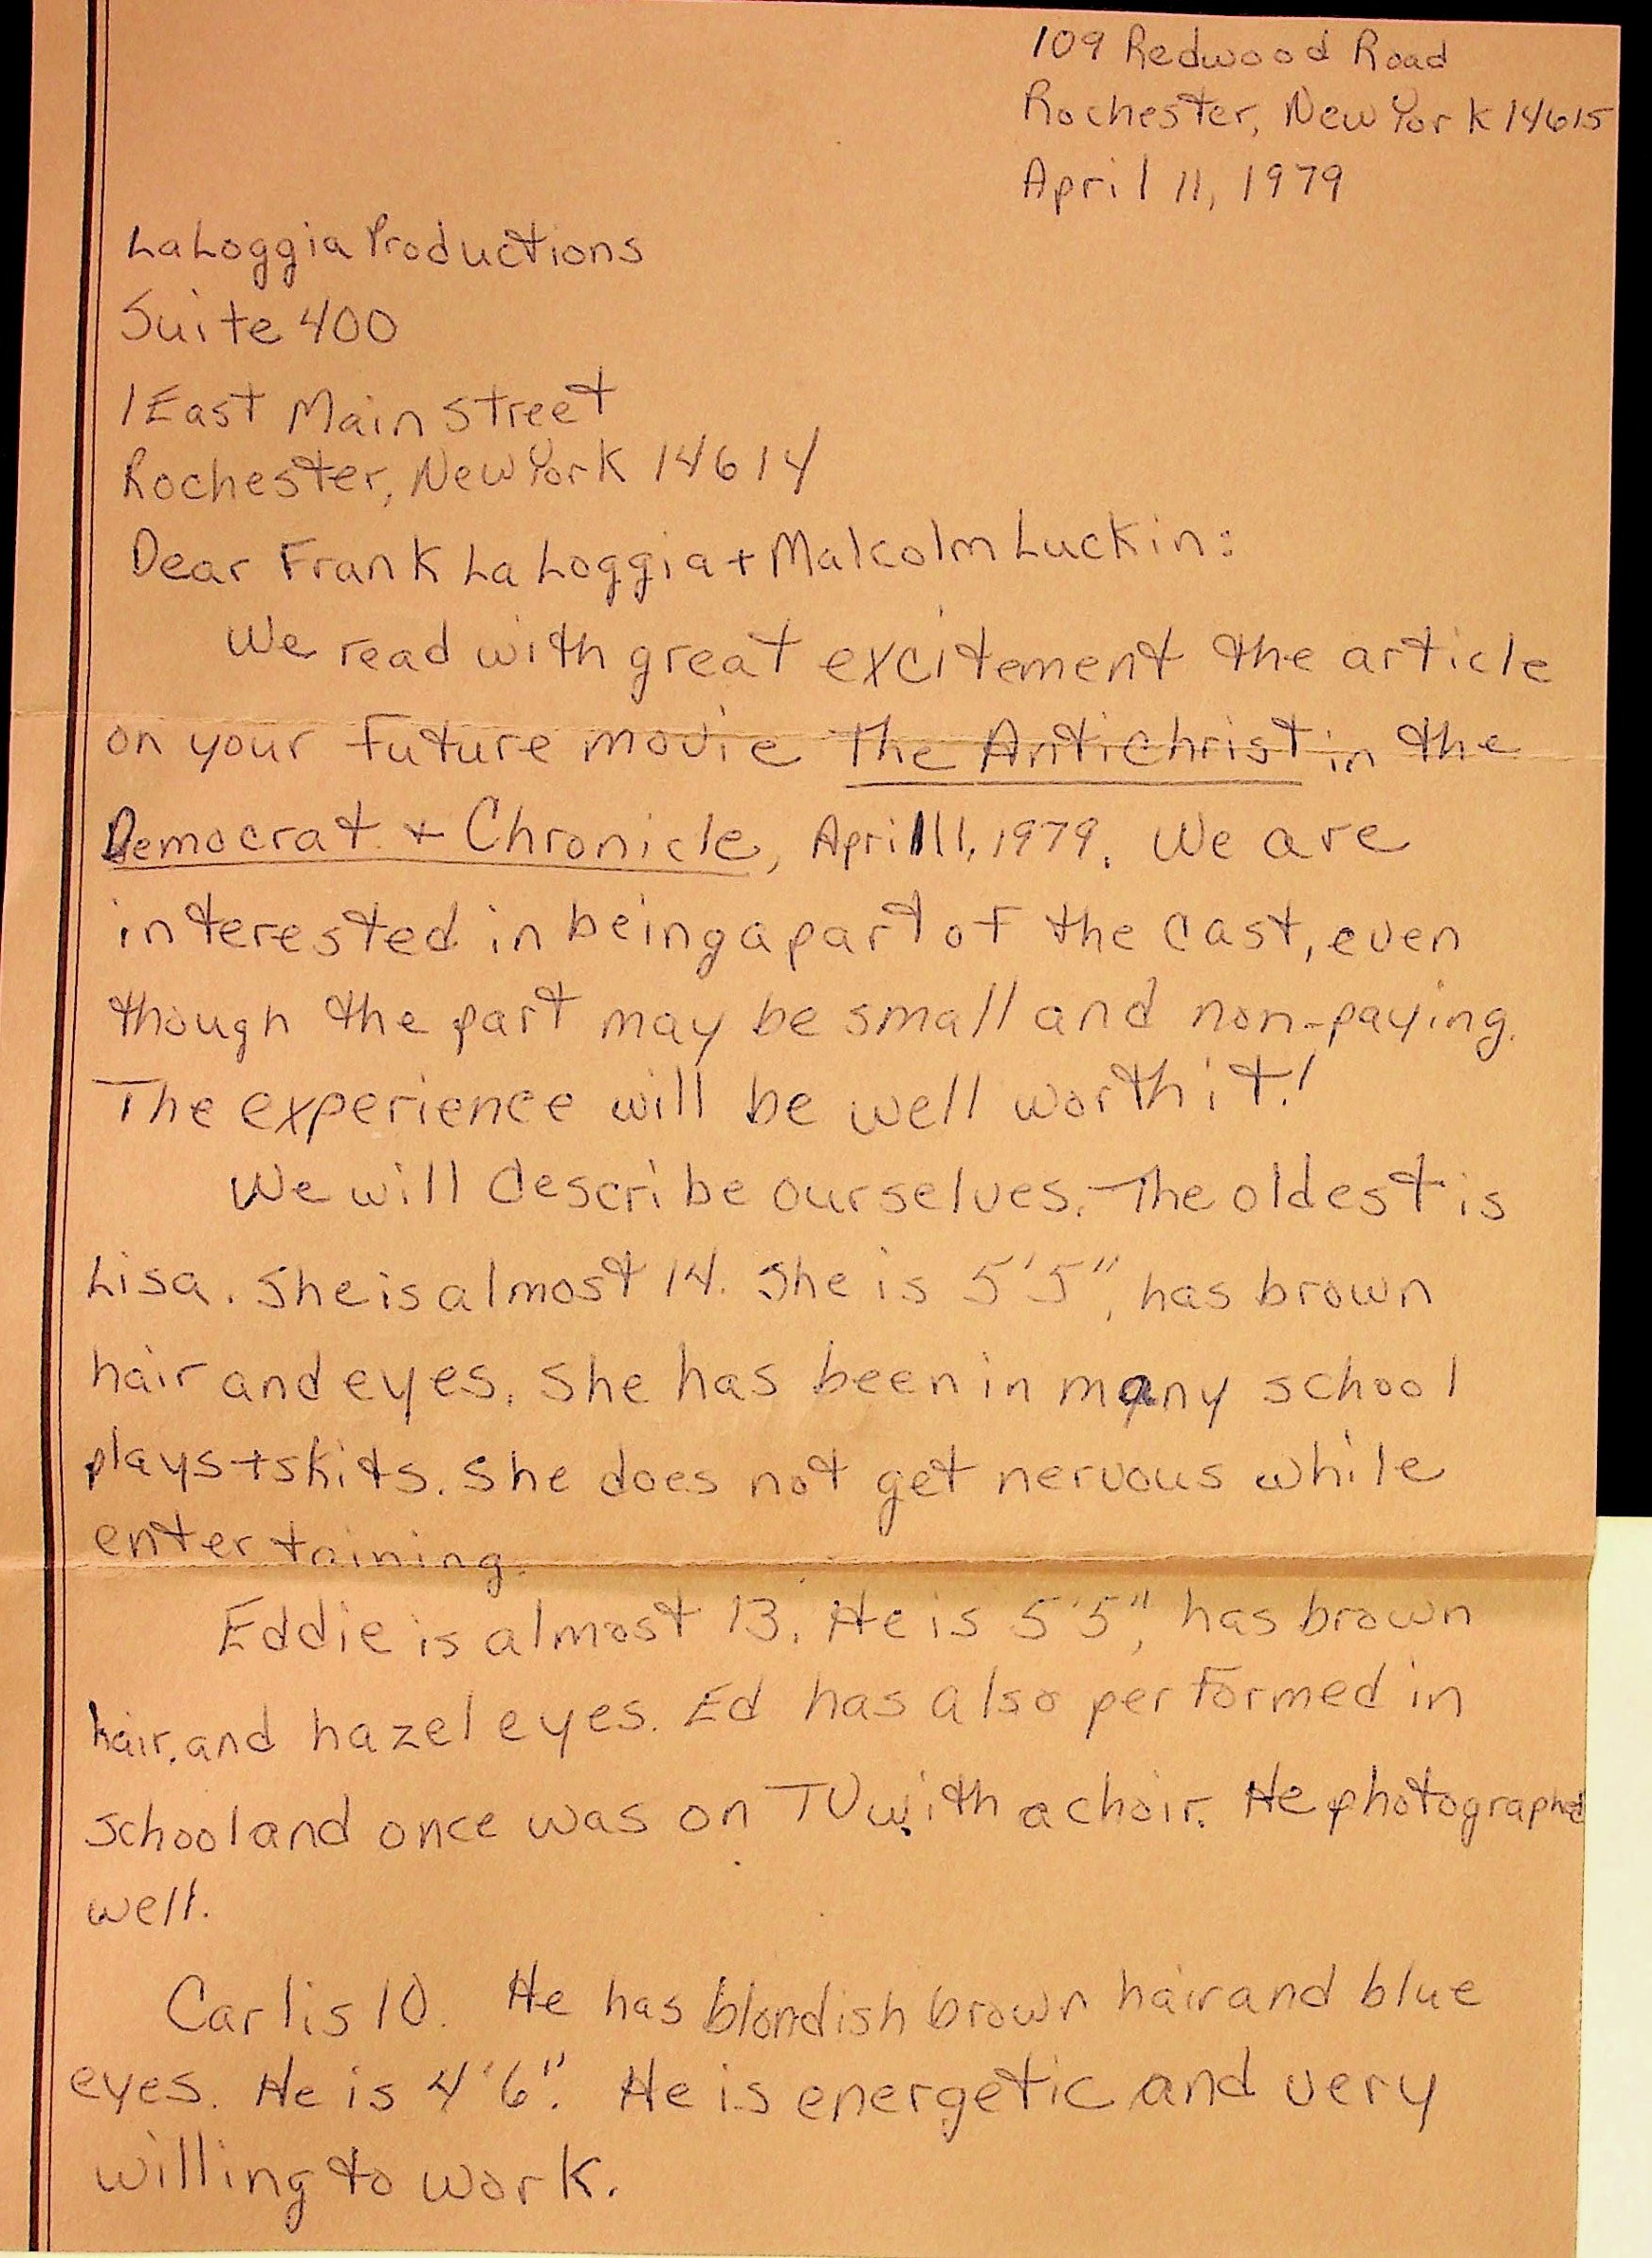 109 Redwood Road
Rochester, New York 14615
April 11, 1979
LaLoggia Productions
Suite 400
1 East Main Street
Rochester, New York 14614
Dear Frank LaLoggia + Malcolm Luckin:
We read with great excitement the article
on your future movie The Antichrist in the
Democrat + Chronicle, April 11, 1979. We are
interested in being a part of the cast, even
though the part may be small and non-paying.
The experience will be well worth it!
We will describe ourselves. The oldest is
Lisa. She is almost 14. She is 5'5", has brown
hair and eyes. She has been in many school
plays + skits. She does not get nervous while
entertaining.
Eddie is almost 13. He is 5'5", has brown
hair, and hazel eyes. Ed has also performed in
school and once was on TV with a choir. He photographed
well.
Carl is 10. He has blondish brown hair and blue
eyes. He is 4'6". He is energetic and very
willing to work.